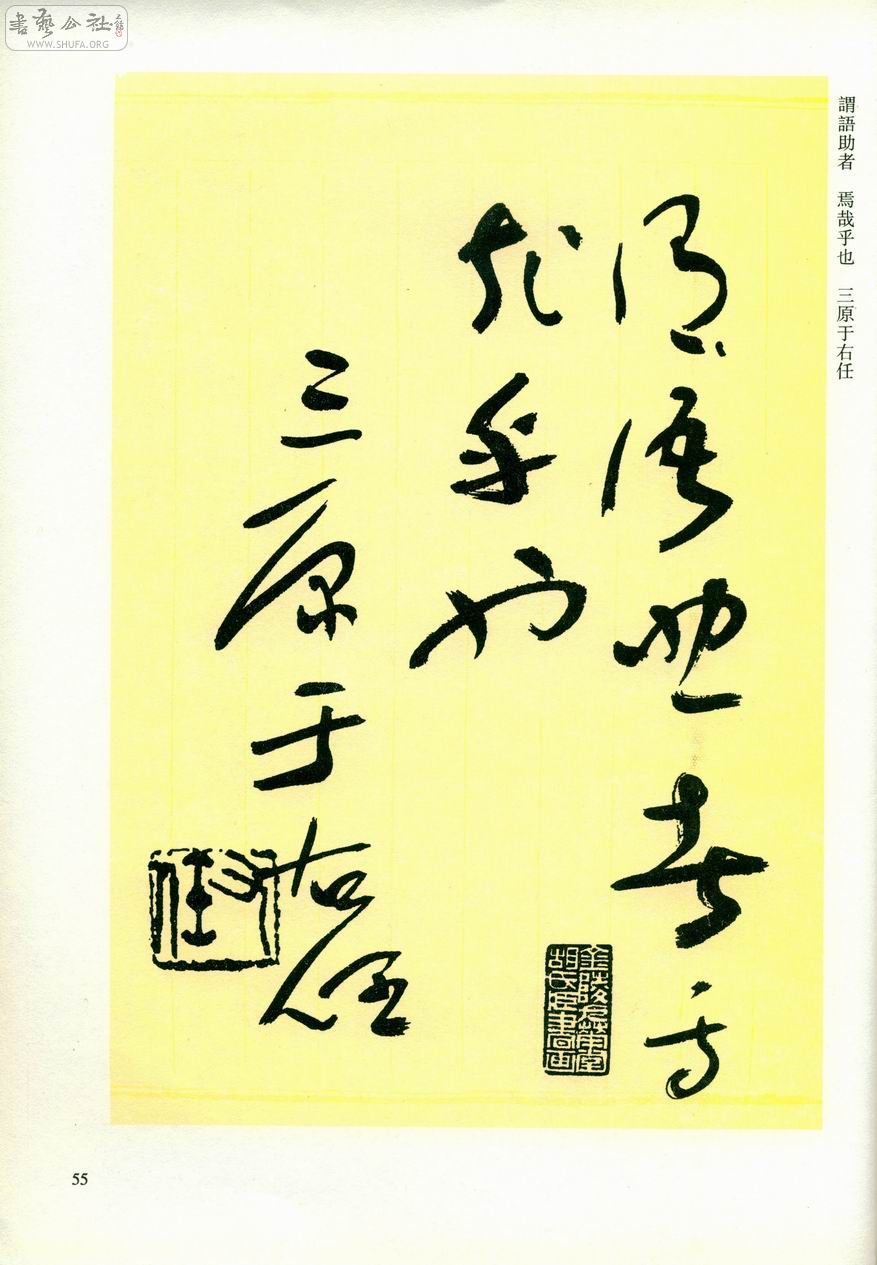 書藝公社
WWW.SHUFA.ORG
謂語助者　焉哉乎也　三原于右任
謂語助者焉
哉乎也
三原于右任
右任
55